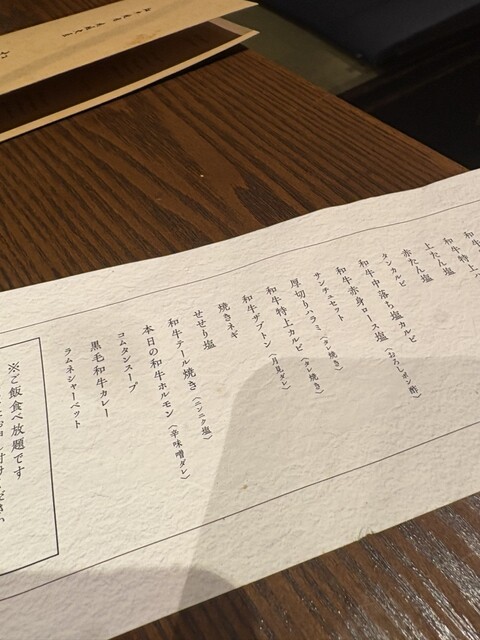 和牛特上
和牛塩
上たん塩
赤たん塩
タンカルビ
和牛中落ち塩カルビ
和牛赤身ロース塩（おろしポン酢）
サンチュセット
厚切りハラミ（タレ焼き）
和牛特上カルビ（タレ焼き）
和牛ザブトン（月見ダレ）
焼きネギ
せせり塩
和牛テール焼き（ニンニク塩）
本日の和牛ホルモン（辛味噌ダレ）
コムタンスープ
黒毛和牛カレー
ラムネシャーベット
※ご飯食べ放題です